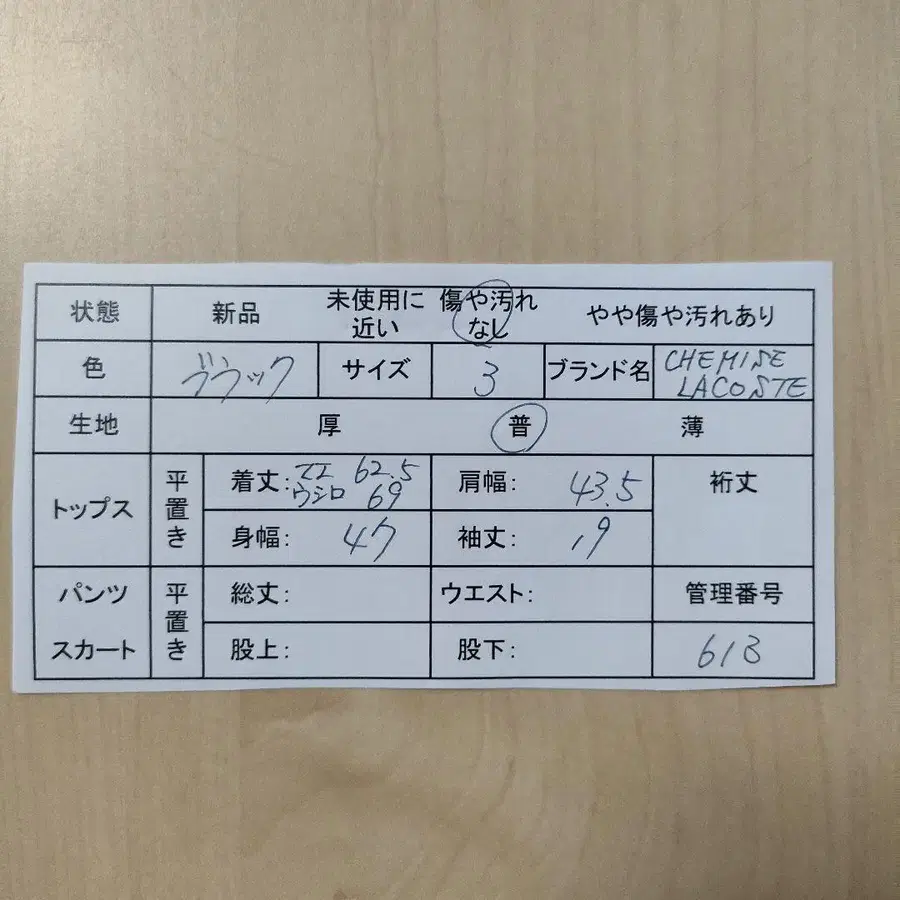 状態 新品 未使用に近い 傷や汚れなし やや傷や汚れあり
色 ブラック サイズ 3 ブランド名 CHEMISE LACOSTE
生地 厚 普 薄
トップス 平置き 着丈: マエ 62.5 ウシロ 69 肩幅: 43.5 裄丈
身幅: 47 袖丈: 19
パンツ スカート 平置き 総丈: ウエスト: 管理番号
股上: 股下: 613